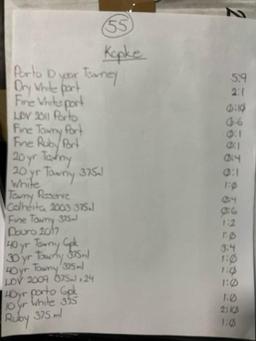 55
Kopke
Porto 10 year Tawney 5:9
Dry White port 2:1
Fine White port 0:10
LBV 2011 Porto 0:6
Fine Tawny Port 0:1
Fine Ruby Port 0:1
20 yr Tawny 0:4
20 yr Tawny 375ml 0:1
White 1:0
Tawny Reserve 0:4
Colheita 2003 375ml 0:6
Fine Tawny 375ml 1:2
Douro 2017 1:0
40 yr Tawny 6pk 3:4
30 yr Tawny 375ml 1:0
40 yr Tawny 375ml 1:0
LBV 2009 375ml x24 1:0
40yr porto 6pk 1:0
10 yr White 375 2:10
Ruby 375ml 1:0